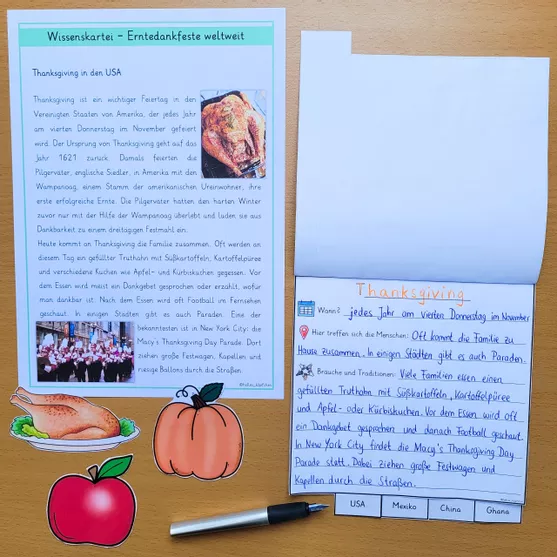 Wissenskartei - Erntedankfeste weltweit
Thanksgiving in den USA
Thanksgiving ist ein wichtiger Feiertag in den
Vereinigten Staaten von Amerika, der jedes Jahr
am vierten Donnerstag im November gefeiert
wird. Der Ursprung von Thanksgiving geht auf das
Jahr 1621 zurück. Damals feierten die
Pilgerväter, englische Siedler, in Amerika mit den
Wampanoag, einem Stamm der amerikanischen Ureinwohner, ihre
erste erfolgreiche Ernte. Die Pilgerväter hatten den harten Winter
zuvor nur mit der Hilfe der Wampanoag überlebt und luden sie aus
Dankbarkeit zu einem dreitägigen Festmahl ein.
Heute kommt an Thanksgiving die Familie zusammen. Oft werden an
diesem Tag ein gefüllter Truthahn mit Süßkartoffeln, Kartoffelpüree
und verschiedene Kuchen wie Apfel- und Kürbiskuchen gegessen. Vor
dem Essen wird meist ein Dankgebet gesprochen oder erzählt, wofür
man dankbar ist. Nach dem Essen wird oft Football im Fernsehen
geschaut. In einigen Städten gibt es auch Paraden. Eine der
bekanntesten ist in New York City: die
Macy's Thanksgiving Day Parade. Dort
ziehen große Festwagen, Kapellen und
riesige Ballons durch die Straßen.
Thanksgiving
Wann? jedes Jahr am vierten Donnerstag im November
Hier treffen sich die Menschen: Oft kommt die Familie zu
Hause zusammen. In einigen Städten gibt es auch Paraden.
Bräuche und Traditionen: Viele Familien essen einen
gefüllten Truthahn mit Süßkartoffeln, Kartoffelpüree
und Apfel- oder Kürbiskuchen. Vor dem Essen wird oft
ein Dankgebet gesprochen und danach Football geschaut.
In New York City findet die Macy's Thanksgiving Day
Parade statt. Dabei ziehen große Festwagen und
Kapellen durch die Straßen.
USA
Mexiko
China
Ghana